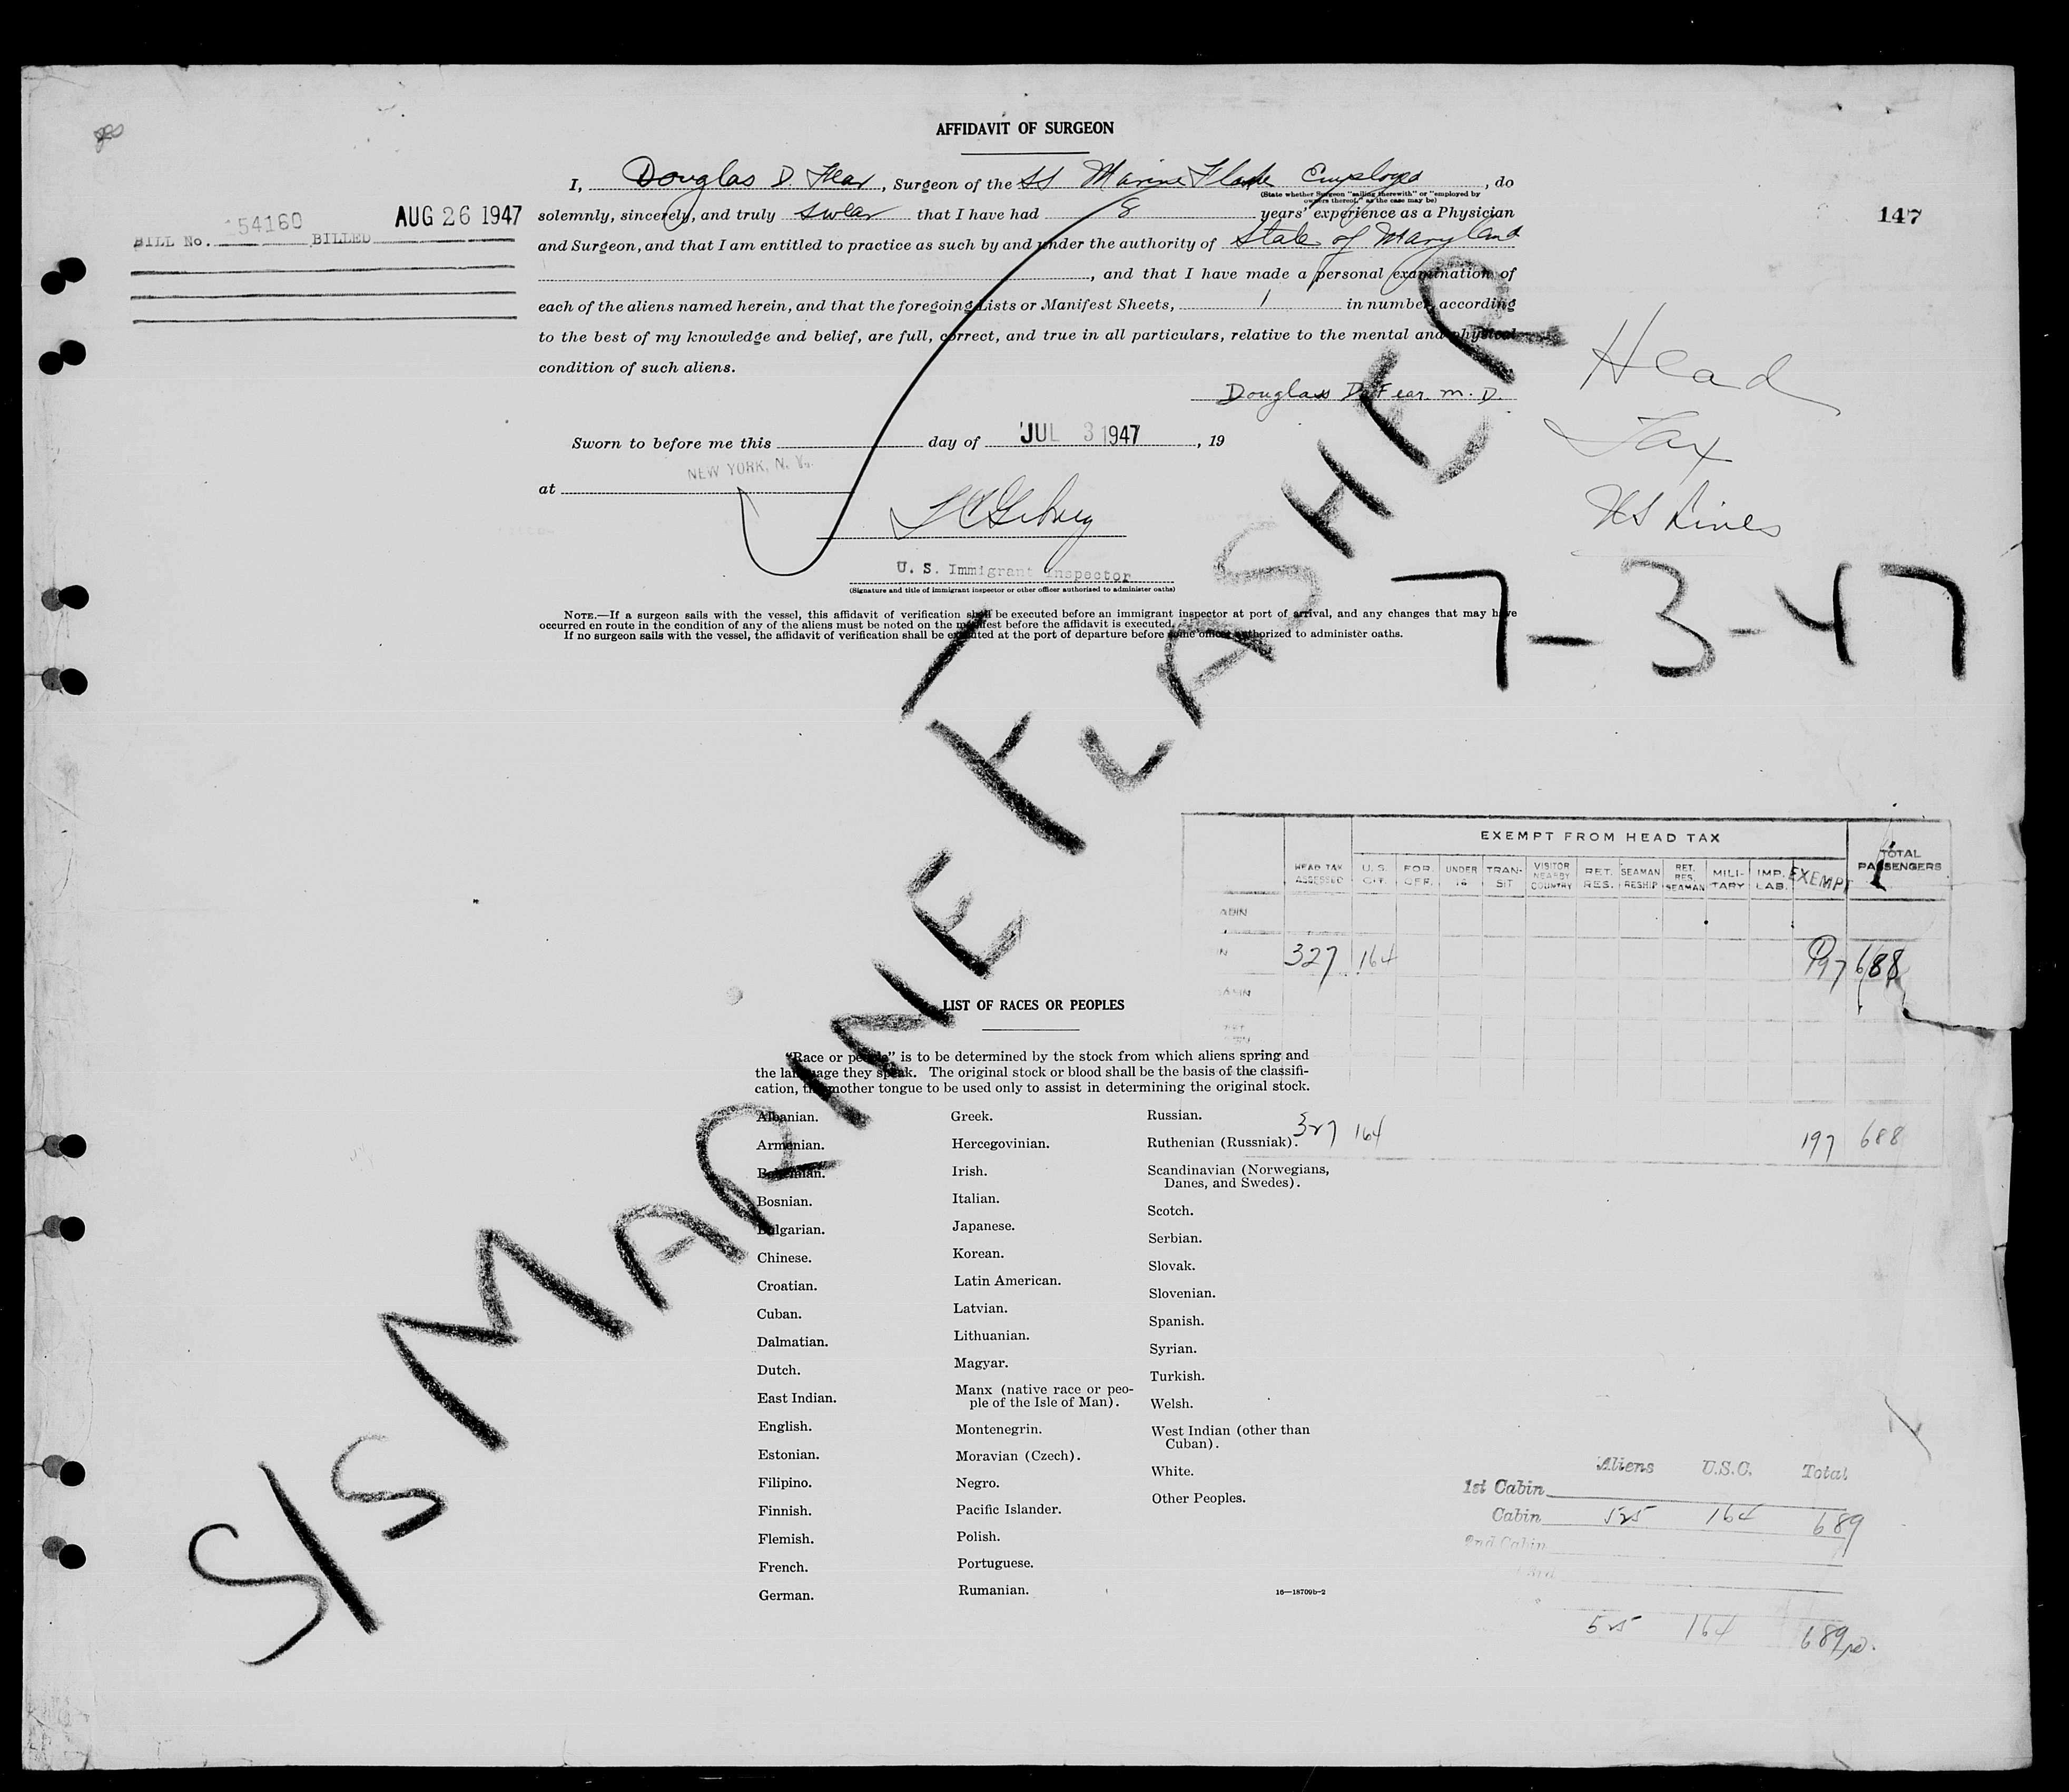 AFFIDAVIT OF SURGEON
I, Douglas D. Fear, Surgeon of the SS Marine Employed, do
(State whether Surgeon "sailing therewith" or "employed by
owners thereof," as the case may be)
BILL No. 54160 BILLED AUG 26 1947
solemnly, sincerely, and truly swear that I have had 8 years' experience as a Physician
147
and Surgeon, and that I am entitled to practice as such by and under the authority of State of Maryland
, and that I have made a personal examination of
each of the aliens named herein, and that the foregoing Lists or Manifest Sheets, 1 in number, according
to the best of my knowledge and belief, are full, correct, and true in all particulars, relative to the mental and physical
condition of such aliens.
Douglass D. Fear. m. D.
Head
Tax
US Lines
Sworn to before me this day of JUL 3 1947, 19
at NEW YORK, N. Y.
U. S. Immigrant Inspector
(Signature and title of immigrant inspector or other officer authorized to administer oaths)
7-3-47
NOTE.—If a surgeon sails with the vessel, this affidavit of verification shall be executed before an immigrant inspector at port of arrival, and any changes that may have
occurred en route in the condition of any of the aliens must be noted on the manifest before the affidavit is executed.
If no surgeon sails with the vessel, the affidavit of verification shall be executed at the port of departure before some officer authorized to administer oaths.
S/S MARINE FLASHER
EXEMPT FROM HEAD TAX
HEAD TAX ASSESSED U.S. CIT. FOR. OFF. UNDER 16 TRANSIT VISITOR NEARBY COUNTRY RET. RES. SEAMAN RESHIP RET. RES. SEAMAN MILITARY IMP. LAB. EXEMPT TOTAL PASSENGERS
327 164 197 688
327 164 197 688
LIST OF RACES OR PEOPLES
"Race or people" is to be determined by the stock from which aliens spring and
the language they speak. The original stock or blood shall be the basis of the classifi-
cation, the mother tongue to be used only to assist in determining the original stock.
Albanian.
Armenian.
Bohemian.
Bosnian.
Bulgarian.
Chinese.
Croatian.
Cuban.
Dalmatian.
Dutch.
East Indian.
English.
Estonian.
Filipino.
Finnish.
Flemish.
French.
German.
Greek.
Hercegovinian.
Irish.
Italian.
Japanese.
Korean.
Latin American.
Latvian.
Lithuanian.
Magyar.
Manx (native race or peo-
ple of the Isle of Man).
Montenegrin.
Moravian (Czech).
Negro.
Pacific Islander.
Polish.
Portuguese.
Rumanian.
Russian.
Ruthenian (Russniak).
Scandinavian (Norwegians,
Danes, and Swedes).
Scotch.
Serbian.
Slovak.
Slovenian.
Spanish.
Syrian.
Turkish.
Welsh.
West Indian (other than
Cuban).
White.
Other Peoples.
16—18709b-2
Aliens U.S.C. Total
1st Cabin
Cabin 525 164 689
2nd Cabin
525 164 689